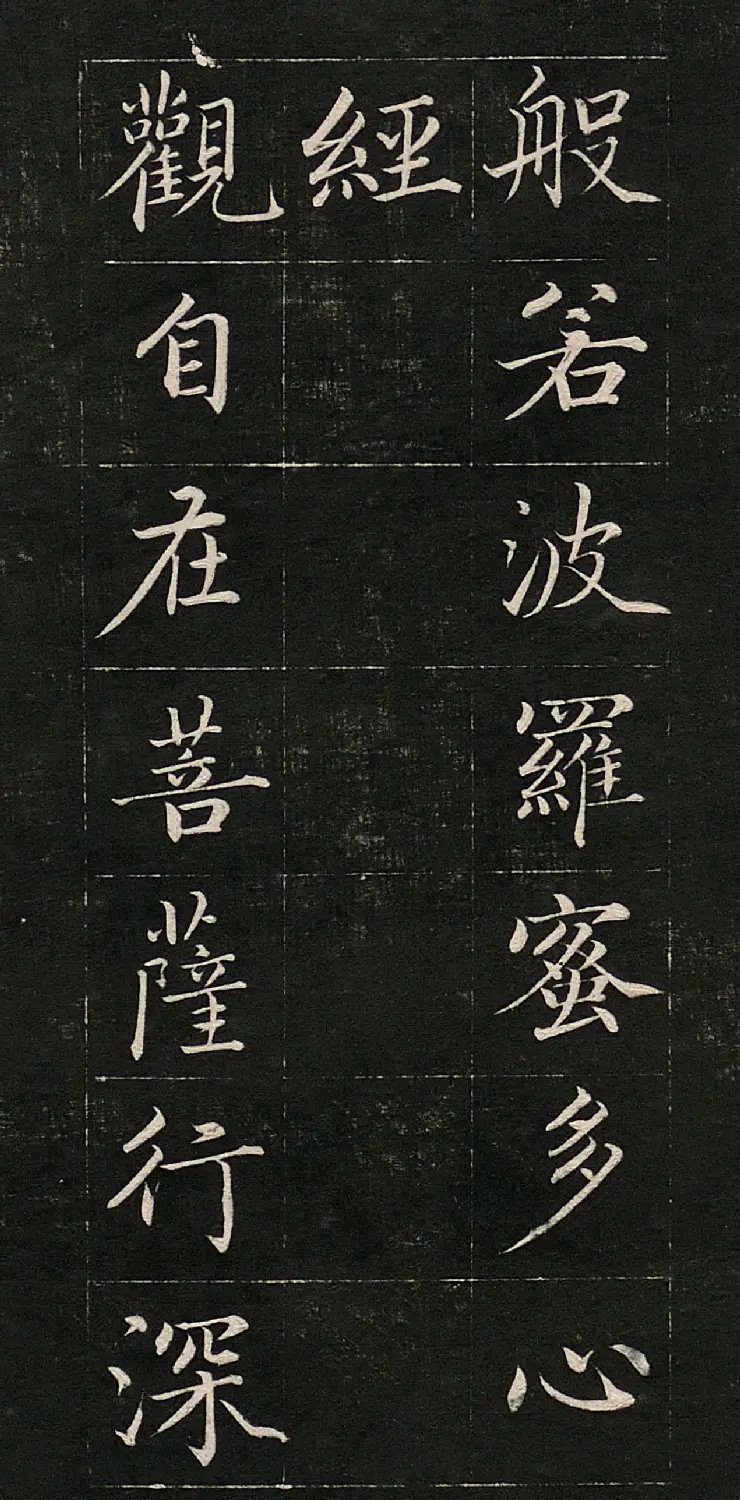 般若波羅蜜多心
經
觀自在菩薩行深